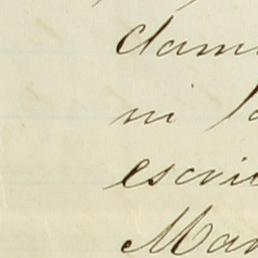 dam
ni la
escri
Mar